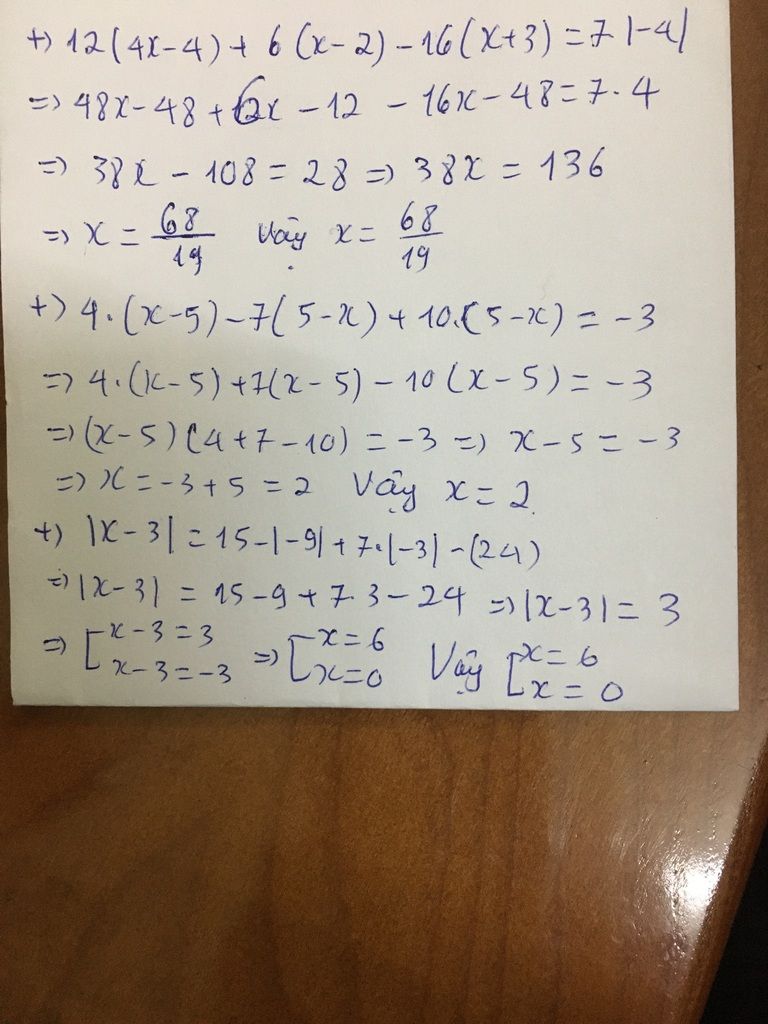 +) 12(4x-4) + 6(x-2) - 16(x+3) = 7|-4|
=> 48x - 48 + 6x - 12 - 16x - 48 = 7·4
=> 38x - 108 = 28 => 38x = 136
=> x = 68/19 Vậy x = 68/19
+) 4·(x-5) - 7(5-x) + 10·(5-x) = -3
=> 4·(x-5) + 7(x-5) - 10(x-5) = -3
=> (x-5)(4+7-10) = -3 => x-5 = -3
=> x = -3+5 = 2 Vậy x = 2
+) |x-3| = 15-|-9| + 7·|-3| - (24)
=> |x-3| = 15-9+7·3-24 => |x-3| = 3
=> [x-3=3 x-3=-3 => [x=6 x=0 Vậy [x=6 x=0